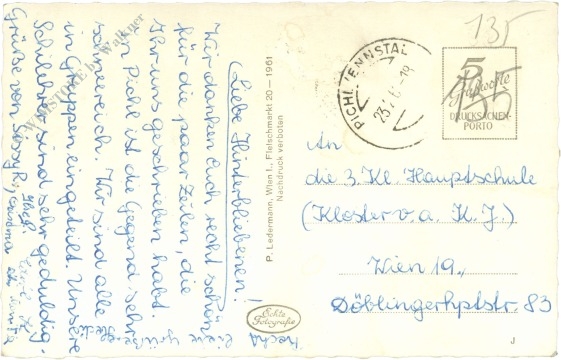 (Liebe Hinterbliebenen!
Wir danken Euch recht schön
für die paar Zeilen, die
Ihr uns geschrieben habt.
In Pichl ist die Gegend sehr
schneereich. Wir sind alle
in Gruppen eingeteilt. Unsere
Schilehrer sind sehr geduldig.
Grüße von
WIENSTORE by Walkner
P. Ledermann, Wien I., Fleischmarkt 20 — 1961
Nachdruck verboten
Echte
Fotografie
PICHL, ENNSTAL
135
5
Postkarte
DRUCKSACHEN-
PORTO
An
die 3. Kl. Hauptschule
(Kloster v. a. K. J.)
Wien 19.,
Döblingerhptstr. 83
J